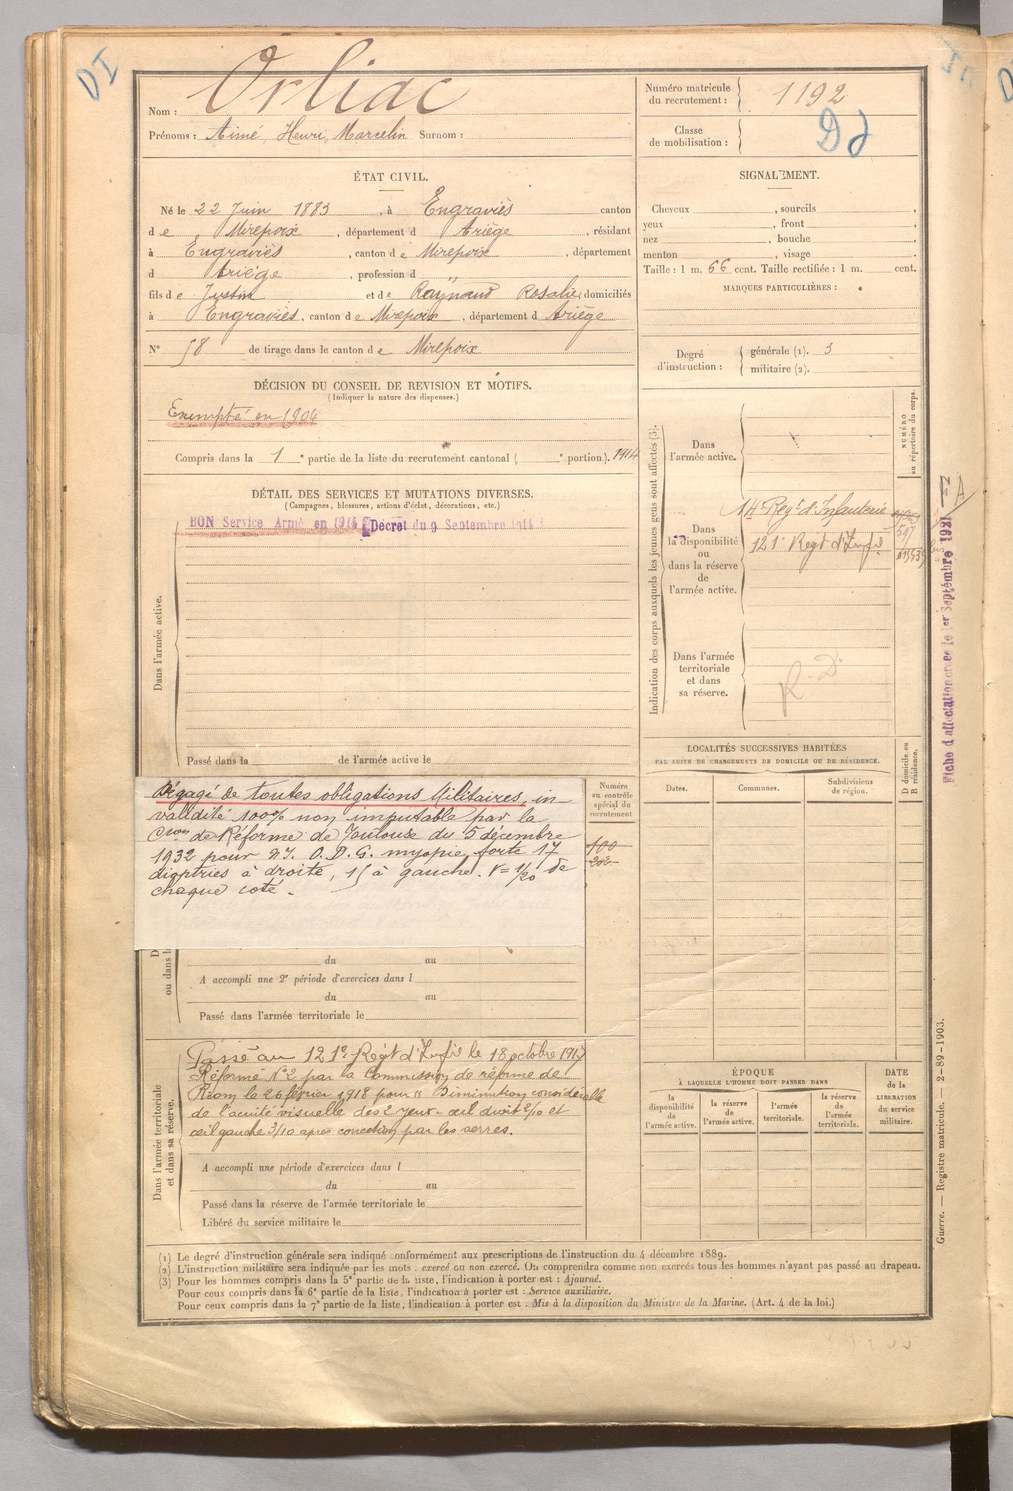 DI
Nom : Orliac
Prénoms : Aimé, Henri, Marcelin Surnom :
Numéro matricule du recrutement : 1192
Classe de mobilisation :
ÉTAT CIVIL.
Né le 22 Juin 1883, à Engraviès canton
de Mirepoix, département d Ariège, résidant
à Engraviès, canton de Mirepoix, département
d Ariège, profession d "
fils de Justin et de Raynaud Rosalie, domiciliés
à Engraviès, canton de Mirepoix, département d Ariège
N° 58 de tirage dans le canton de Mirepoix
SIGNALEMENT.
Cheveux , sourcils ,
yeux , front ,
nez , bouche ,
menton , visage .
Taille : 1 m. 66 cent. Taille rectifiée : 1 m. cent.
MARQUES PARTICULIÈRES :
Degré d'instruction :
générale (1). 3
militaire (2).
DÉCISION DU CONSEIL DE REVISION ET MOTIFS.
(Indiquer la nature des dispenses.)
Exempté en 1904
Compris dans la 1e partie de la liste du recrutement cantonal ( e portion). 1914
DÉTAIL DES SERVICES ET MUTATIONS DIVERSES.
(Campagnes, blessures, actions d'éclat, décorations, etc.)
BON Service Armé en 1914 Décret du 9 Septembre 1914
Dans l'armée active.
Passé dans la de l'armée active le
Indication des corps auxquels les jeunes gens sont affectés (3).
NUMÉRO au répertoire du corps.
Dans l'armée active.
Dans la disponibilité ou dans la réserve de l'armée active.
14 Régt d'Infanterie
121e Regt d'Infie
Dans l'armée territoriale et dans sa réserve.
R. D.
Fiche d'affectation créée le 1er Septembre 1921
Dégagé de toutes obligations Militaires, in-
validité 100% non imputable par la
Cion de Réforme de Toulouse du 5 décembre
1932 pour D.I. O.D.G. myopie forte 17
dioptries à droite, 15 à gauche. V = 1/20 de
chaque coté.
Numéro au contrôle spécial du recrutement
100
202
LOCALITÉS SUCCESSIVES HABITÉES
PAR SUITE DE CHANGEMENTS DE DOMICILE OU DE RÉSIDENCE.
Dates.
Communes.
Subdivisions de région.
D domicile ou R résidence.
ou dans la
du au
A accompli une 2e période d'exercices dans l
du au
Passé dans l'armée territoriale le
Dans l'armée territoriale et dans sa réserve.
Passé au 121e Régt d'Infie le 18 octobre 1917
Réformé N°2 par la Commission de réforme de
Riom le 26 février 1918 pour "Diminution considérable
de l'acuité visuelle des 2 yeux - œil droit 2/10 et
œil gauche 3/10 après correction par les verres.
A accompli une période d'exercices dans l
du au
Passé dans la réserve de l'armée territoriale le
Libéré du service militaire le
ÉPOQUE
À LAQUELLE L'HOMME DOIT PASSER DANS
la disponibilité de l'armée active.
la réserve de l'armée active.
l'armée territoriale.
la réserve de l'armée territoriale.
DATE de la LIBÉRATION du service militaire.
(1) Le degré d'instruction générale sera indiqué conformément aux prescriptions de l'instruction du 4 décembre 1889.
(2) L'instruction militaire sera indiquée par les mots : exercé ou non exercé. On comprendra comme non exercés tous les hommes n'ayant pas passé au drapeau.
(3) Pour les hommes compris dans la 5e partie de la liste, l'indication à porter est : Ajourné.
Pour ceux compris dans la 6e partie de la liste, l'indication à porter est : Service auxiliaire.
Pour ceux compris dans la 7e partie de la liste, l'indication à porter est : Mis à la disposition du Ministre de la Marine. (Art. 4 de la loi.)
Guerre. — Registre matricule. — 2-89-1903.